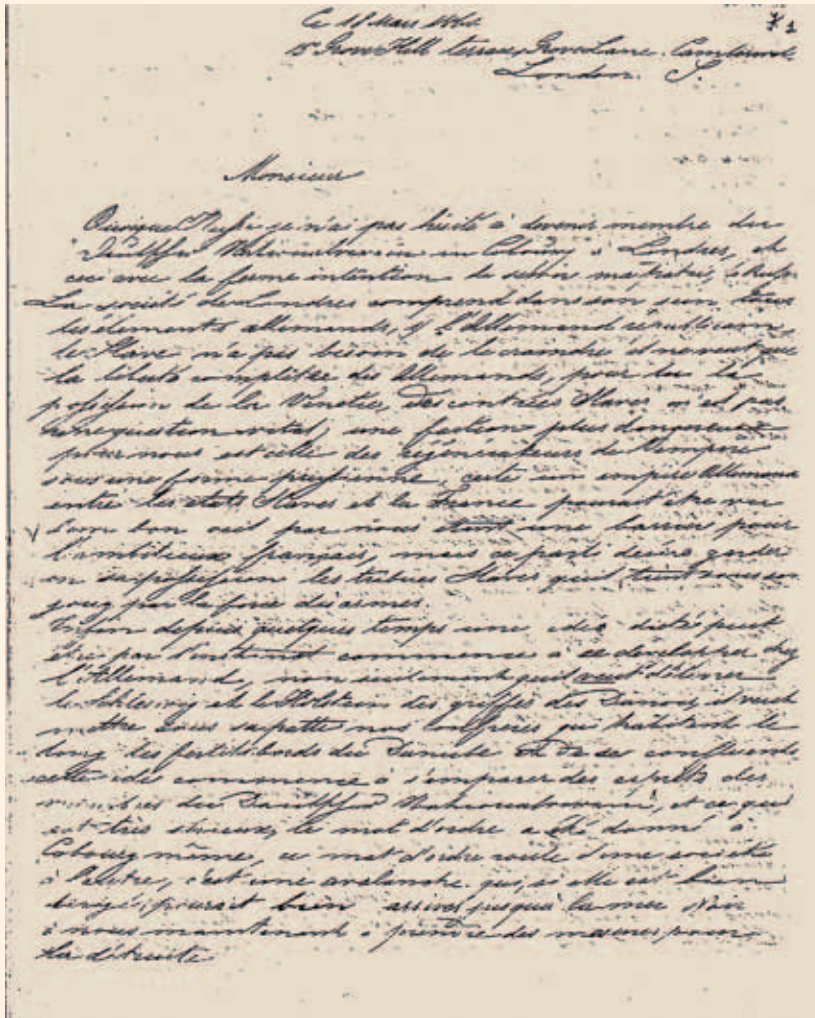 Ce 18 Mars
15 Grove Hill terrace, Grove Lane. Camberwell
London. S.
Monsieur
Quoique Russe je n'ai pas hésité à devenir membre du
Nationalverein en Cobourg à Londres, et
ceci avec la ferme intention de servir ma patrie, la Russie
La société de Londres comprend dans son sein tous
les éléments allemands, l'Allemand républicain,
le Slave n'a pas besoin de le craindre il ne veut que
la liberté complète des Allemands, pour lui la
possession de la Vénétie, des contrées Slaves n'est pas
une question vitale, une faction plus dangereuse
pour nous est celle des régénérateurs de l'empire
sous une forme prussienne, certe un empire Allemand
entre les états Slaves et la France pourait être vu
d'un bon oeil par nous étant une barrière pour
l'ambitieux français, mais ce parti désire garder
en sa possession les tribus Slaves qu'il tient sous son
joug par la force des armes.
Enfin depuis quelques temps une idée dictée peut
être par l'instinct commence à se développer chez
l'Allemand, non seulement qu'il veut délivrer
le Schleswig et le Holstein des griffes des Danois, il veut
mettre sous sa patte nos confrères qui habitent le
long des fertils bords du Danube et de ses confluents
cette idée commence à s'emparer des esprits des
membres du Nationalverein, et ce qui
est très sérieux, le mot d'ordre a été donné à
Cobourg même, ce mot d'ordre roule d'une société
à l'autre, c'est une avalanche qui, si elle est bien
dirigé, pourait bien arriver jusqu'à la mer Noir
à nous maintenant à prendre des mesures pour
la détruite